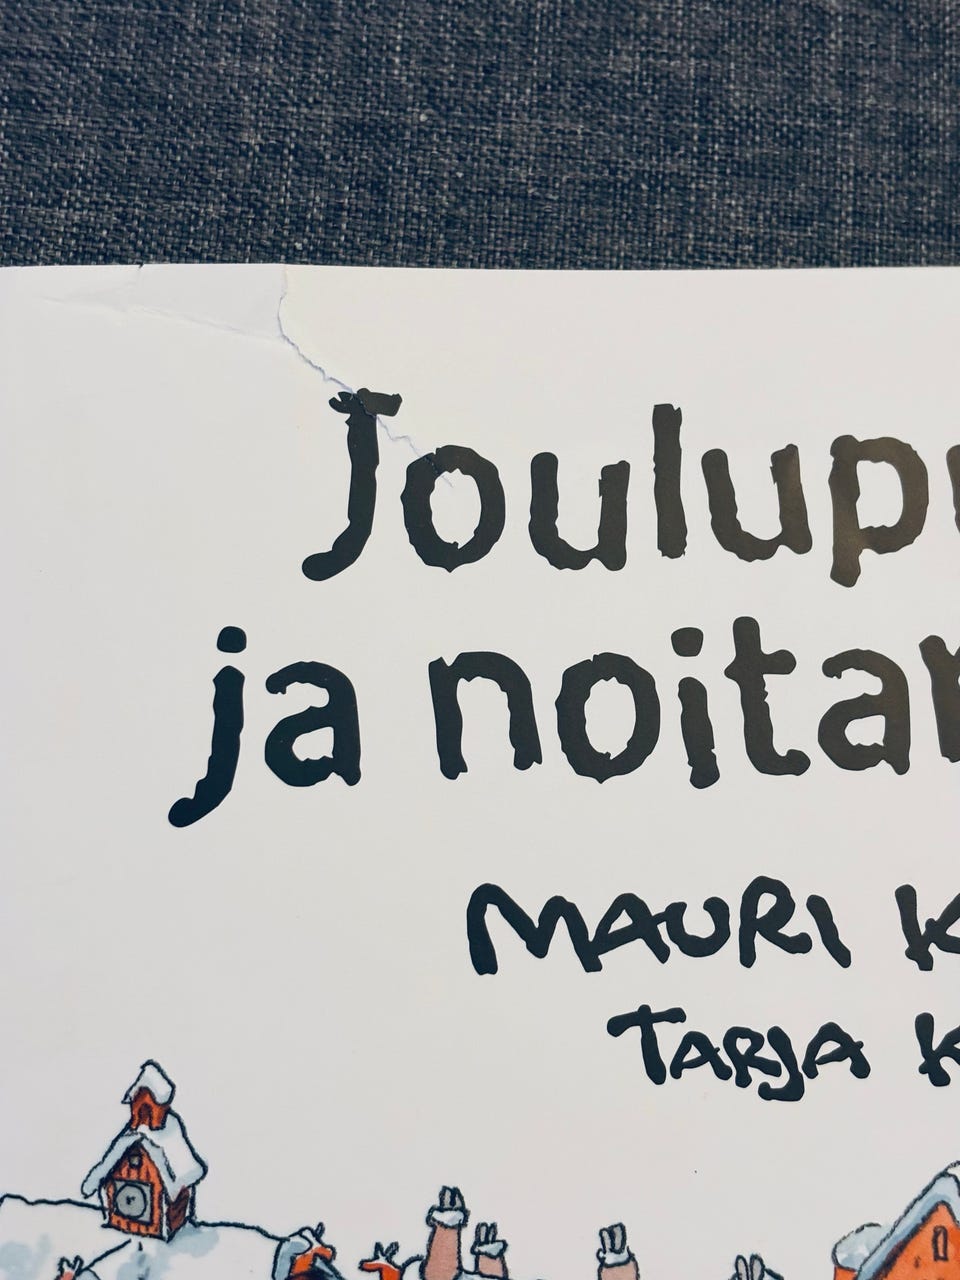 Joulup
ja noita
MAURI K
TARJA K